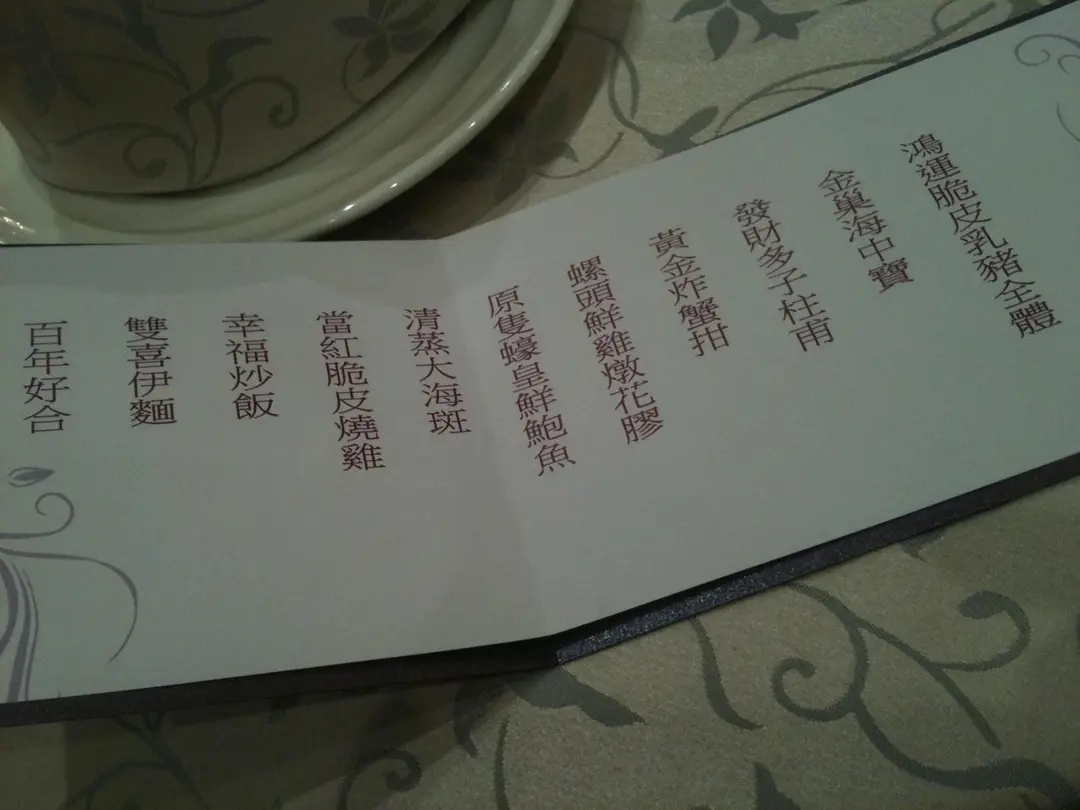 鴻運脆皮乳豬全體
金巢海中寶
發財多子柱甫
黃金炸蟹拑
螺頭鮮雞燉花膠
原隻蠔皇鮮鮑魚
清蒸大海斑
當紅脆皮燒雞
幸福炒飯
雙喜伊麵
百年好合